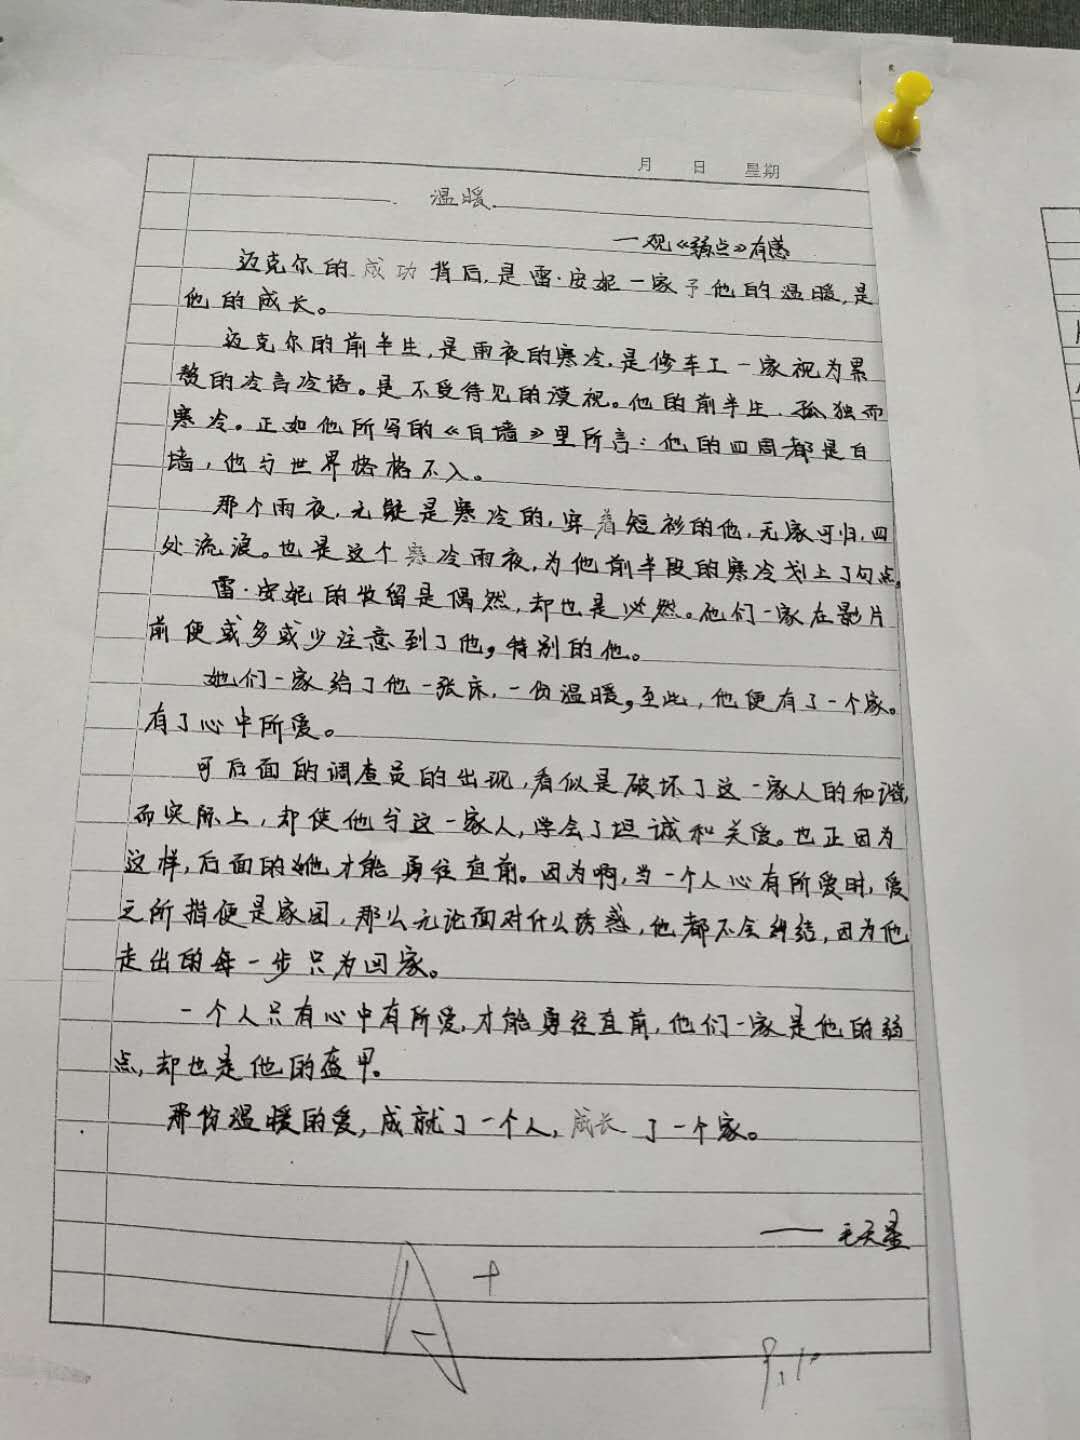 月 日 星期
温暖
一观《弱点》有感
迈克尔的成功背后,是雷·安妮一家予他的温暖,是
他的成长。
迈克尔的前半生,是雨夜的寒冷,是修车工一家视为累
赘的冷言冷语。是不受待见的漠视。他的前半生,孤独而
寒冷。正如他所写的《白墙》里所言:他的四周都是白
墙,他与世界格格不入。
那个雨夜,无疑是寒冷的,穿着短衫的他,无家可归,四
处流浪。也是这个寒冷雨夜,为他前半段的寒冷划上了句点。
雷·安妮的收留是偶然,却也是必然。他们一家在影片
前便或多或少注意到了他,特别的他。
她们一家给了他一张床,一份温暖,至此,他便有了一个家。
有了心中所爱。
可后面的调查员的出现,看似是破坏了这一家人的和谐,
而实际上,却使他与这一家人,学会了坦诚和关爱。也正因为
这样,后面的他才能勇往直前。因为啊,当一个人心有所爱时,爱
之所指便是家园,那么无论面对什么诱惑,他都不会纠结,因为他
走出的每一步只为回家。
一个人只有心中有所爱,才能勇往直前,他们一家是他的弱
点,却也是他的盔甲。
那份温暖的爱,成就了一个人,成长了一个家。
—— 毛天星
A+